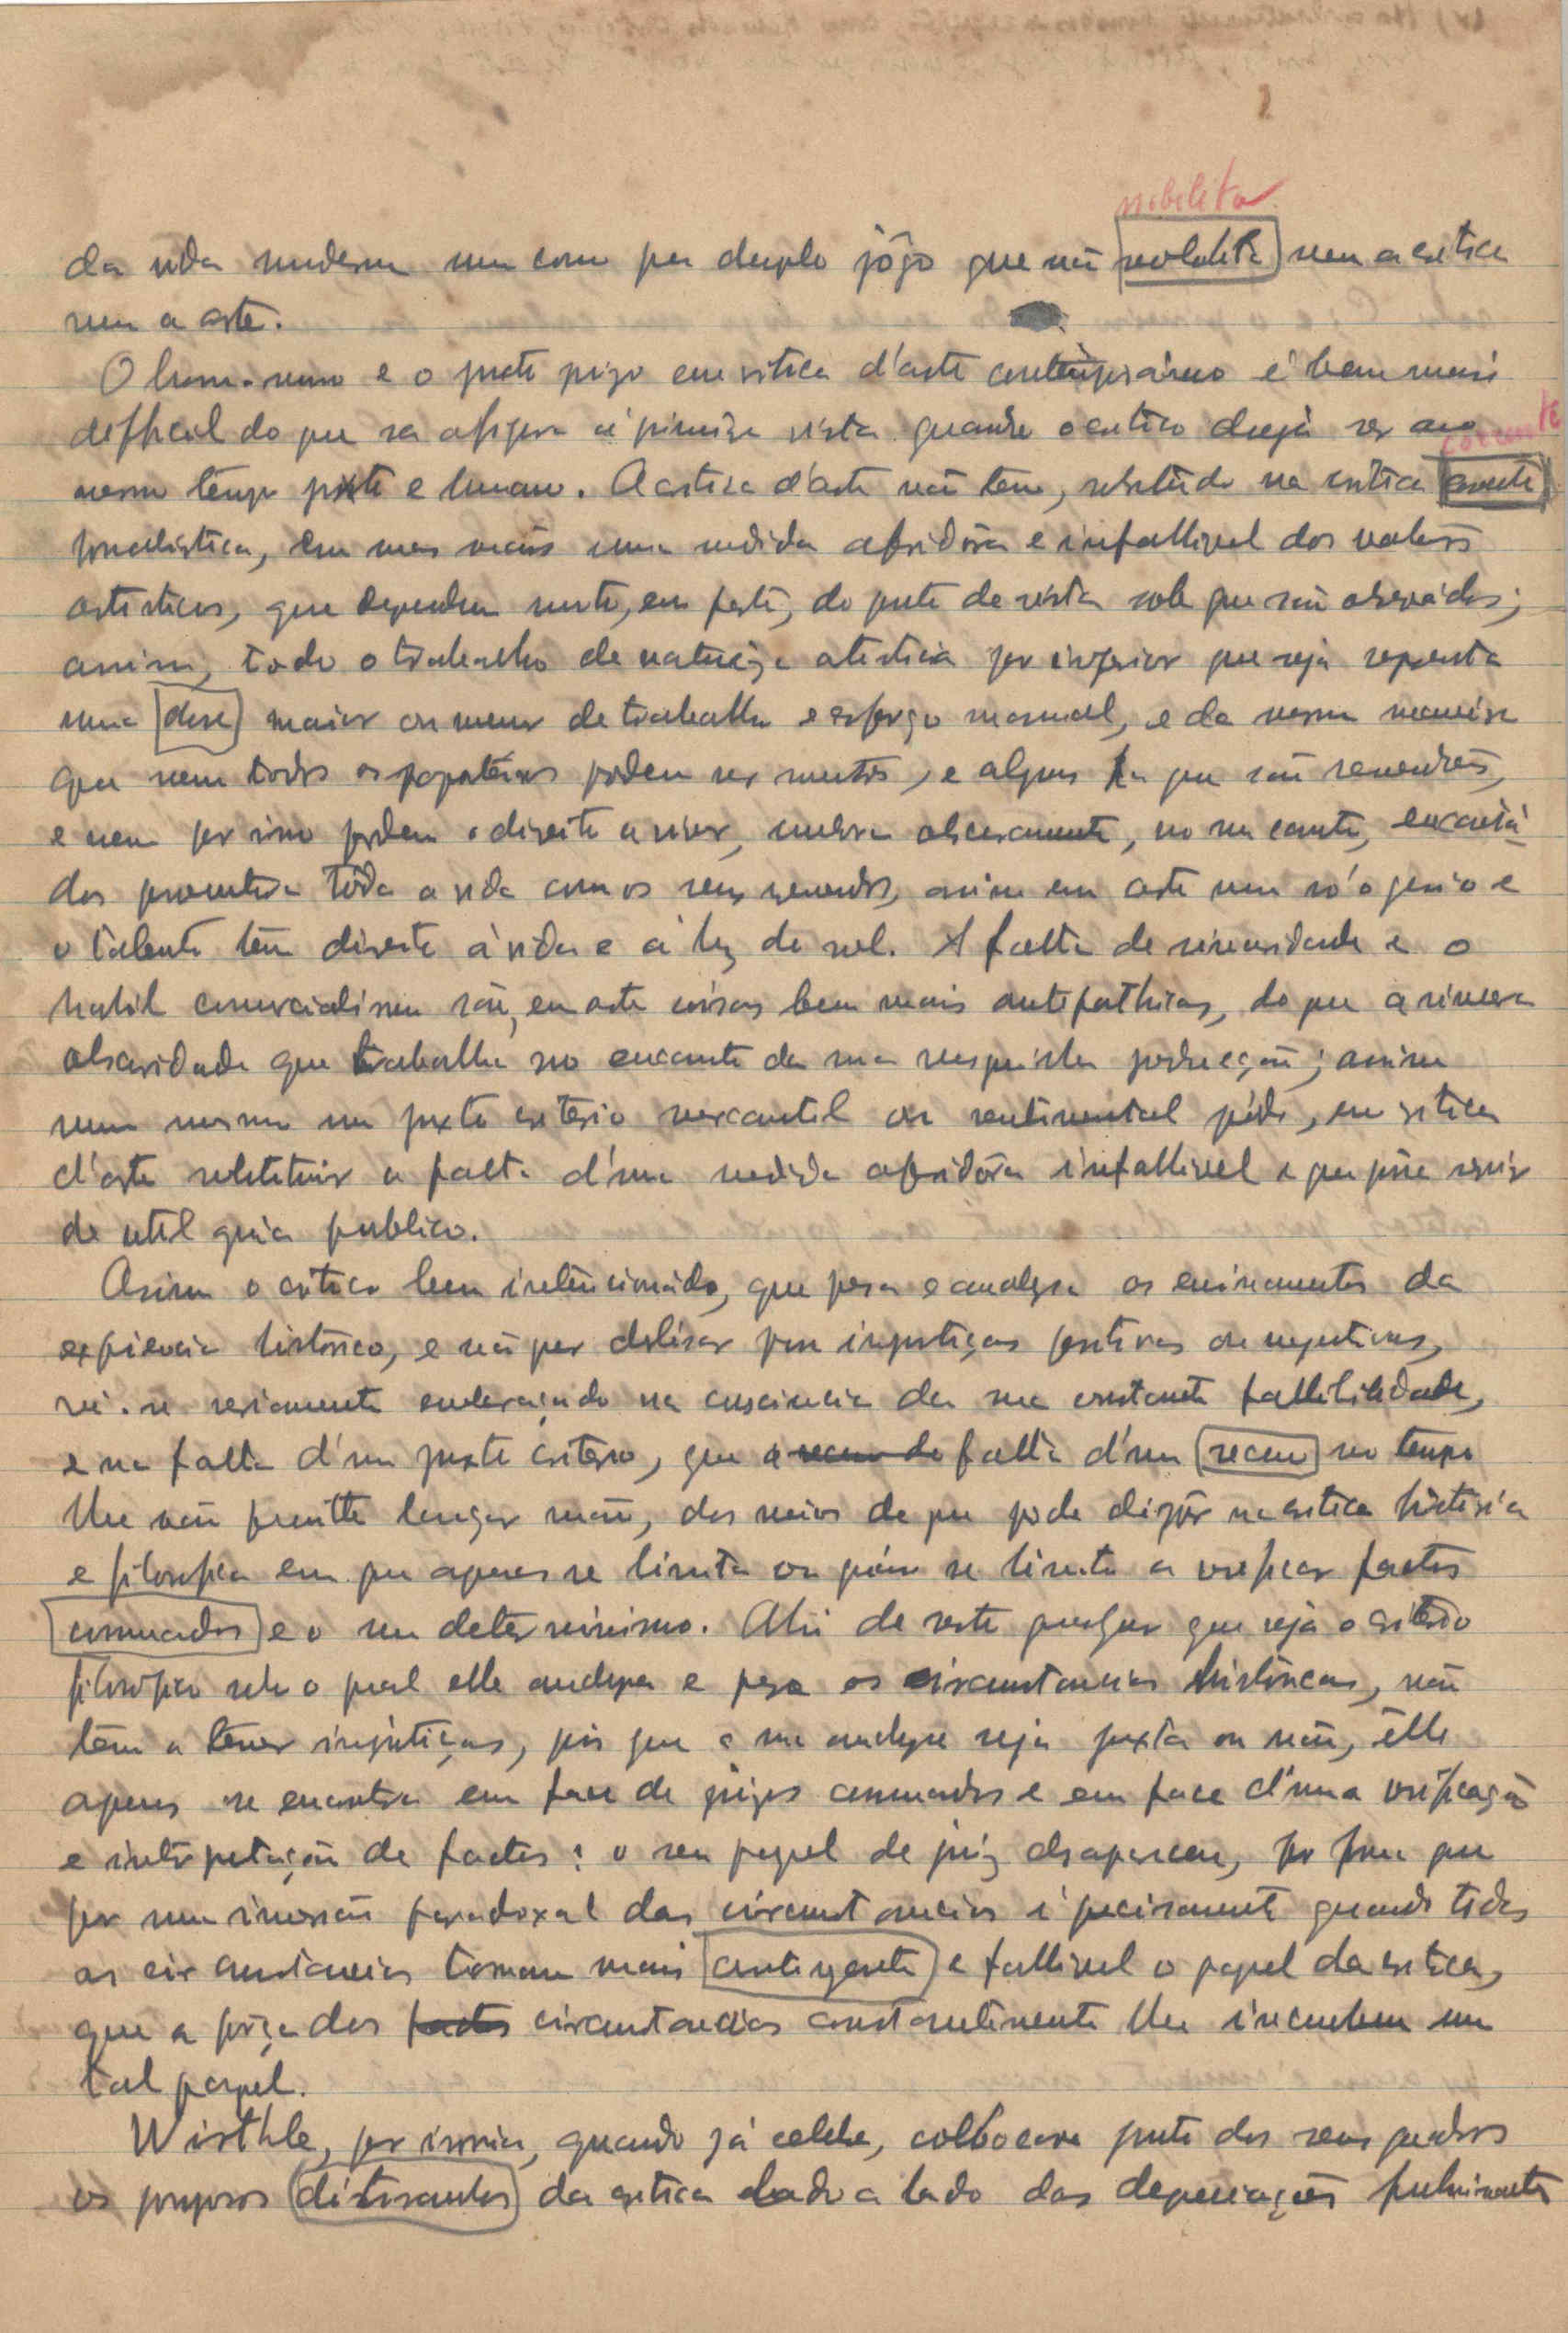 nobilita
da vida moderna num como que duplo jôgo que não nobilita nem a critica
nem a arte.
O humanismo e o justo juizo em critica d'arte contemporánea é bem mais
difficil do que se afigura á primeira vista quando o critico deseja ser ao
corrente
mesmo tempo justo e humano. A critica d'arte não tem, sobretudo na critica corrente
jornalistica, em mãos uma medida aferidôra e infallivel dos valores
artisticos, que dependem muito, em parte, do ponto de vista sob que são observados;
assim, todo o trabalho de natureza artistica por inferior que seja representa
uma dose maior ou menor de trabalho e esforço manual, e da mesma maneira
que nem todos os sapateiros podem ser mestres, e alguns ha que são remendões,
e nem por isso perdem o direito a viver, embora obscuramente, no seu canto, encaixá-
dos toda a vida com os seus remendos, assim em arte nem só o genio e
o talento têm direito á vida e á luz do sol. A falta de sinceridade e o
habil comercialismo são, em arte coisas bem mais antipathicas, do que a sincera
obscuridade que trabalha no encanto da sua producção; assim
nem mesmo um justo critério mercantil ou sentimental póde, em critica
d'arte substituir a falta d'uma medida aferidôra infallivel e que possa servir
de util guia publico.
Assim o critico bem intencionádo, que pesa e analysa os ensinamentos da
experiencia histórica, e não quer deslisar por injustiças positivas ou negativas,
vê-se seriamente embaraçado na consciencia da sua constante fallibilidade,
e na falta d'um justo criterio, que a falta d'um recuo no tempo
lhe não permitte lançar mão, dos meios de que pode dispôr na critica história
e filosofica em que apenas se limita ou quási se limita a verificar factos
consumados e o seu determinismo. Ahi de resto qualquer que seja o critério
filosofico sob o qual elle analysa e pesa as circunstancias históricas, não
tem a temer injustiças, pois que a sua analyse seja justa ou não, êlle
apenas se encontra em face de juizos consumados e em face d'uma verificação
e interpretação de factos: o seu papel de juiz desapareceu, por que
por uma inversão paradoxal das circunstancias é precisamente quando todas
as circunstancias tornam mais contingente e fallivel o papel da critica,
que a força dos factos circunstancias constantemente lhe incumbem um
tal papel.
Wisthler, por ironia, quando já celebre, collocava junto dos seus quadros
os da critica lado a lado das depreciações fulminantes